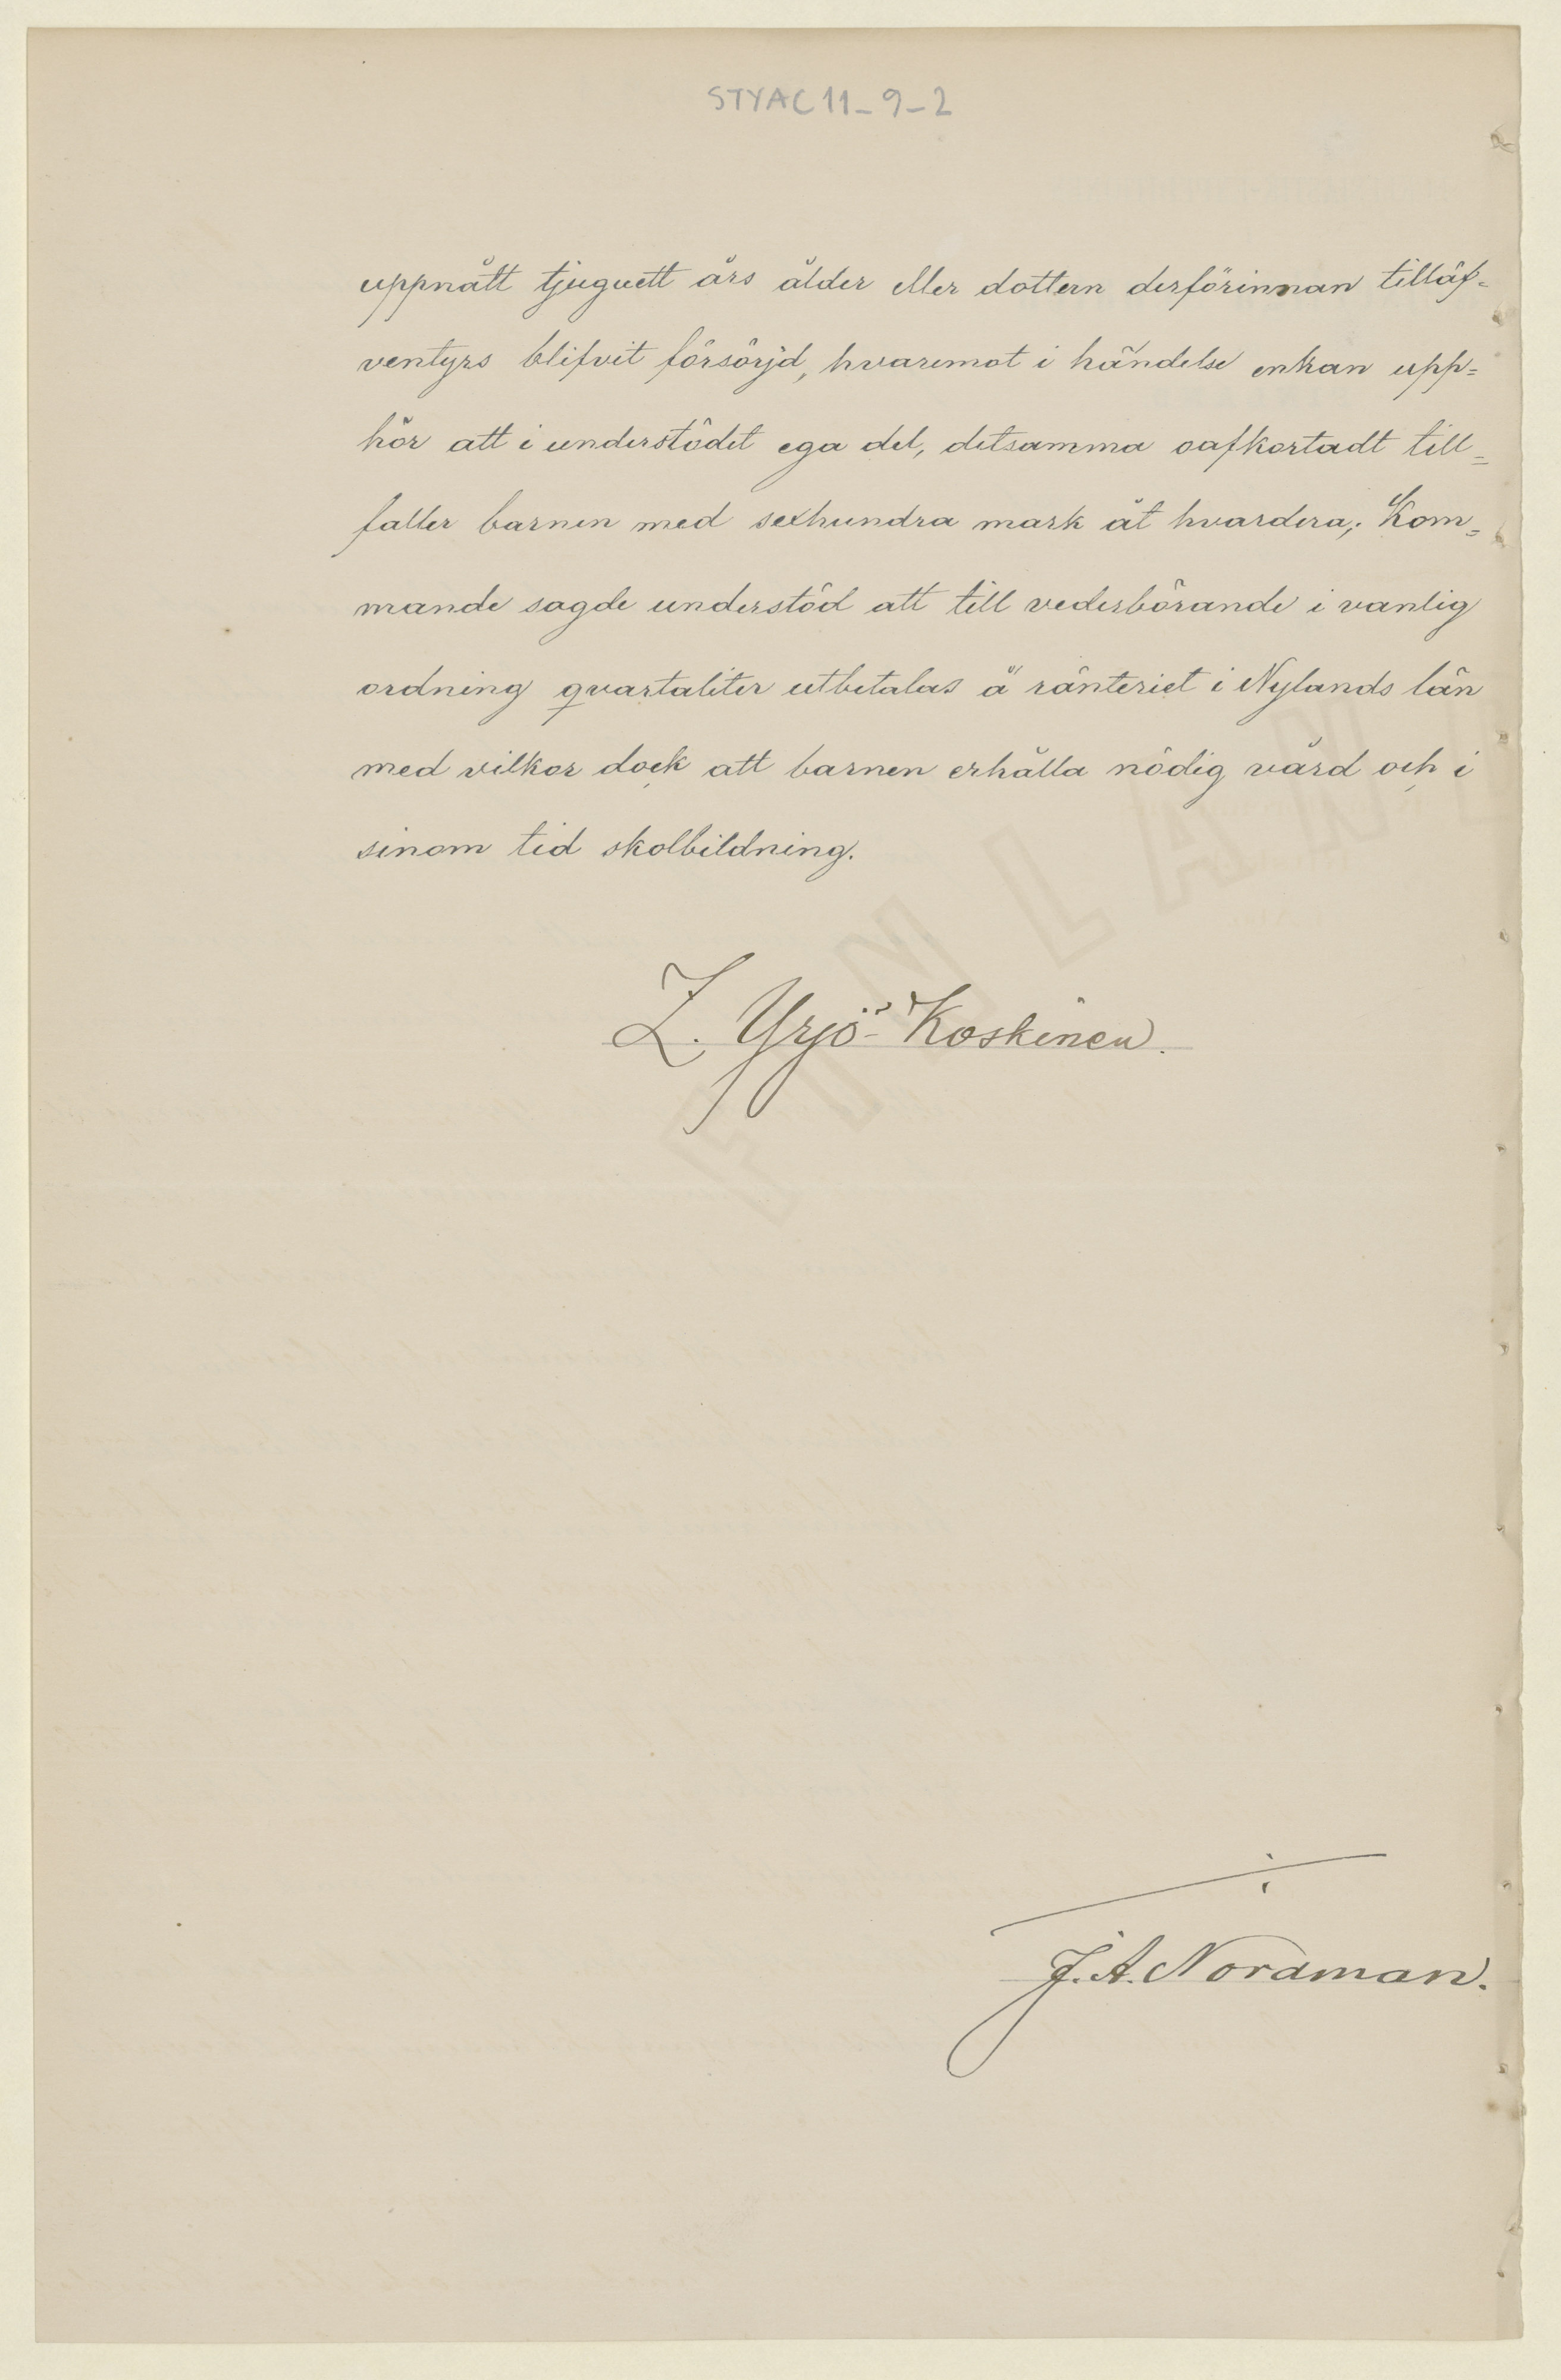 STYAC11_9_2
uppnått tjuguett års ålder eller dottern derförinnan tilläf-
ventyrs blifvit försörjd, hvaremot i händelse enkan upp=
hör att i understödet ega del, detsamma oafkortadt till=
faller barnen med sexhundra mark åt hvardera; Kom=
mande sagde understöd att till vederbörande i vanlig
ordning qvartaliter utbetalas å ränteriet i Nylands län
med vilkor dock att barnen erhålla nödig vård och i
sinom tid skolbildning.
FINLAN
Z. Yrjö-Koskinen.
J. A. Nordman.